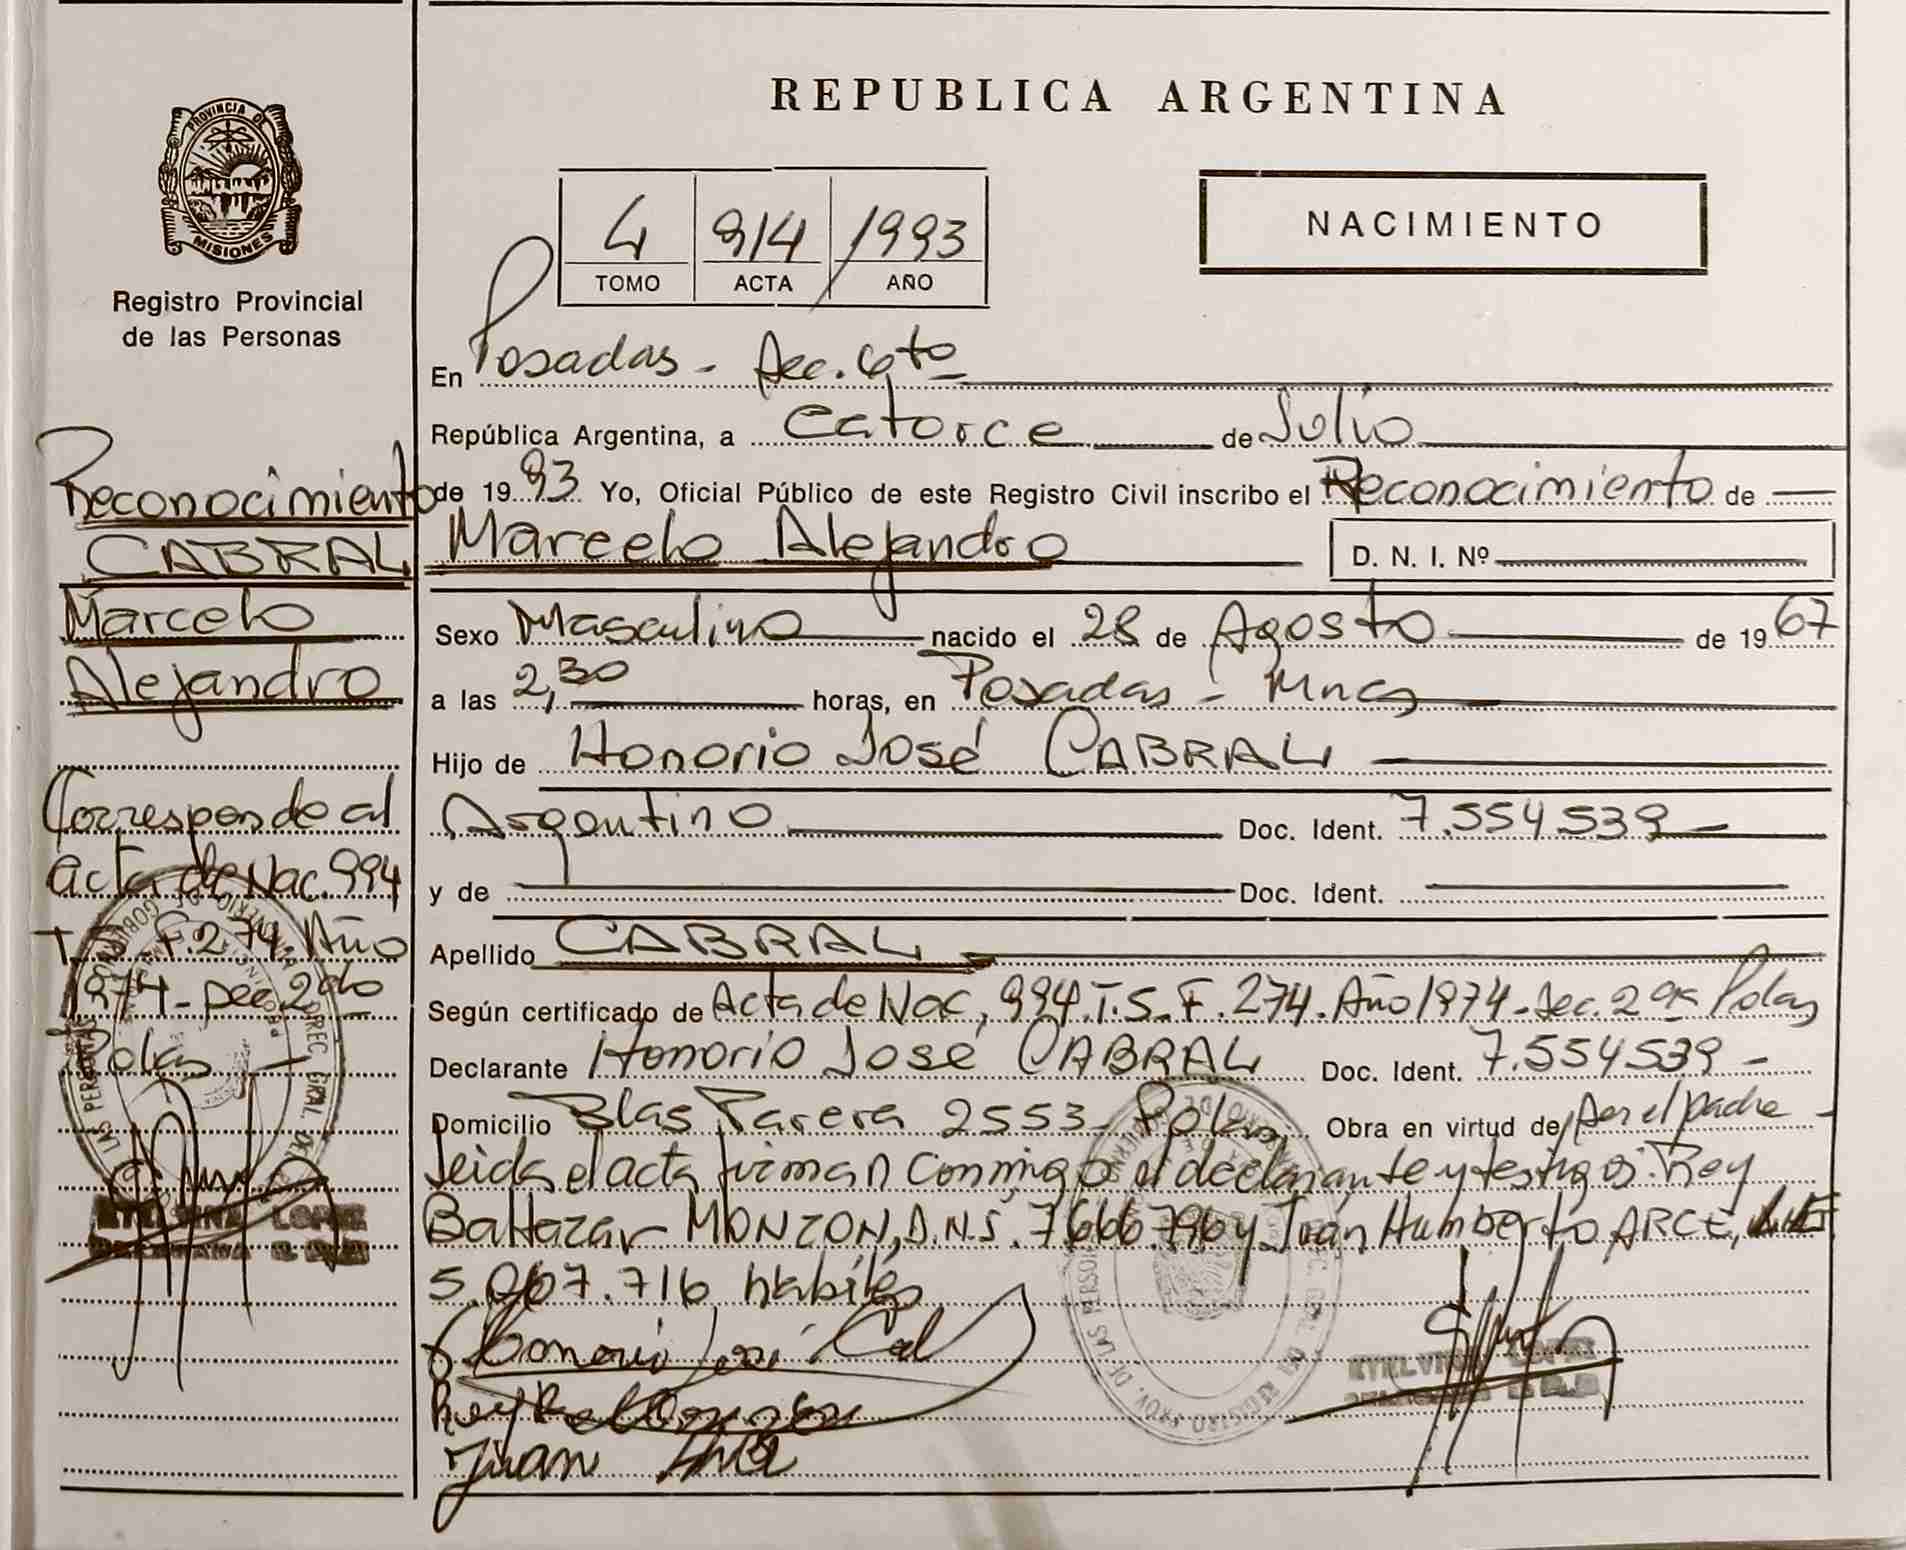 REPUBLICA ARGENTINA
PROVINCIA DE
MISIONES
Registro Provincial
de las Personas
4 914 1993
TOMO ACTA AÑO
NACIMIENTO
En Posadas - Sec. 6to
República Argentina, a Catorce de Julio
de 1993 Yo, Oficial Público de este Registro Civil inscribo el Reconocimiento de
Marcelo Alejandro D. N. I. Nº
Sexo Masculino nacido el 28 de Agosto de 1967
a las 2,30 horas, en Posadas - Mnes
Hijo de Honorio José CABRAL
Argentino Doc. Ident. 7.554539
y de Doc. Ident.
Apellido CABRAL
Según certificado de Acta de Nac, 994. T.5. F. 274. Año 1974 - Sec. 2da Pdas
Declarante Honorio José CABRAL Doc. Ident. 7.554539 -
Domicilio Blas Parera 2553 - Pdas, Obra en virtud de Ser el padre -
Leida el acta firman conmigo el declarante y testigos: Rey
Baltazar MONZON, D.N.I. 7666.796 y Juán Humberto ARCE,
5.067.716 habiles
Honorio José Cabral
Juan Arce
Reconocimiento
CABRAL
Marcelo
Alejandro
Corresponde al
acta de Nac. 994
F. 274. Año
1974 - Sec 2da
Pdas -
ETELVINA LOPEZ
ETELVINA LOPEZ